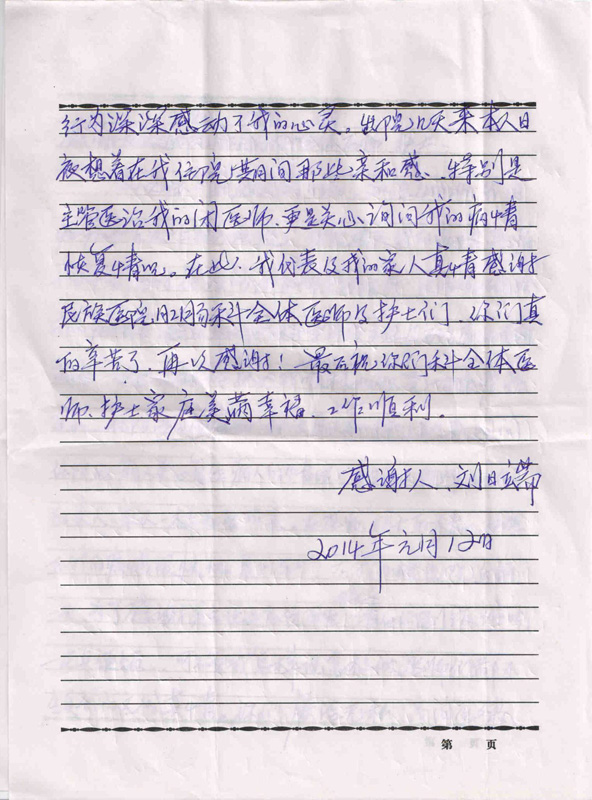 行为深深感动了我的心灵。出院几天来本人日
夜想着在我住院期间那些亲和感、特别是
主管医治我的闭医师、更是关心询问我的病情
恢复情况。在此、我代表及我的家人真情感谢
民族医院肛肠科全体医师及护士们、你们真
的辛苦了、再次感谢！最后祝你们科全体医
师、护士家庭美满幸福、工作顺利。
感谢人、刘日
2014年元月12日
第 页